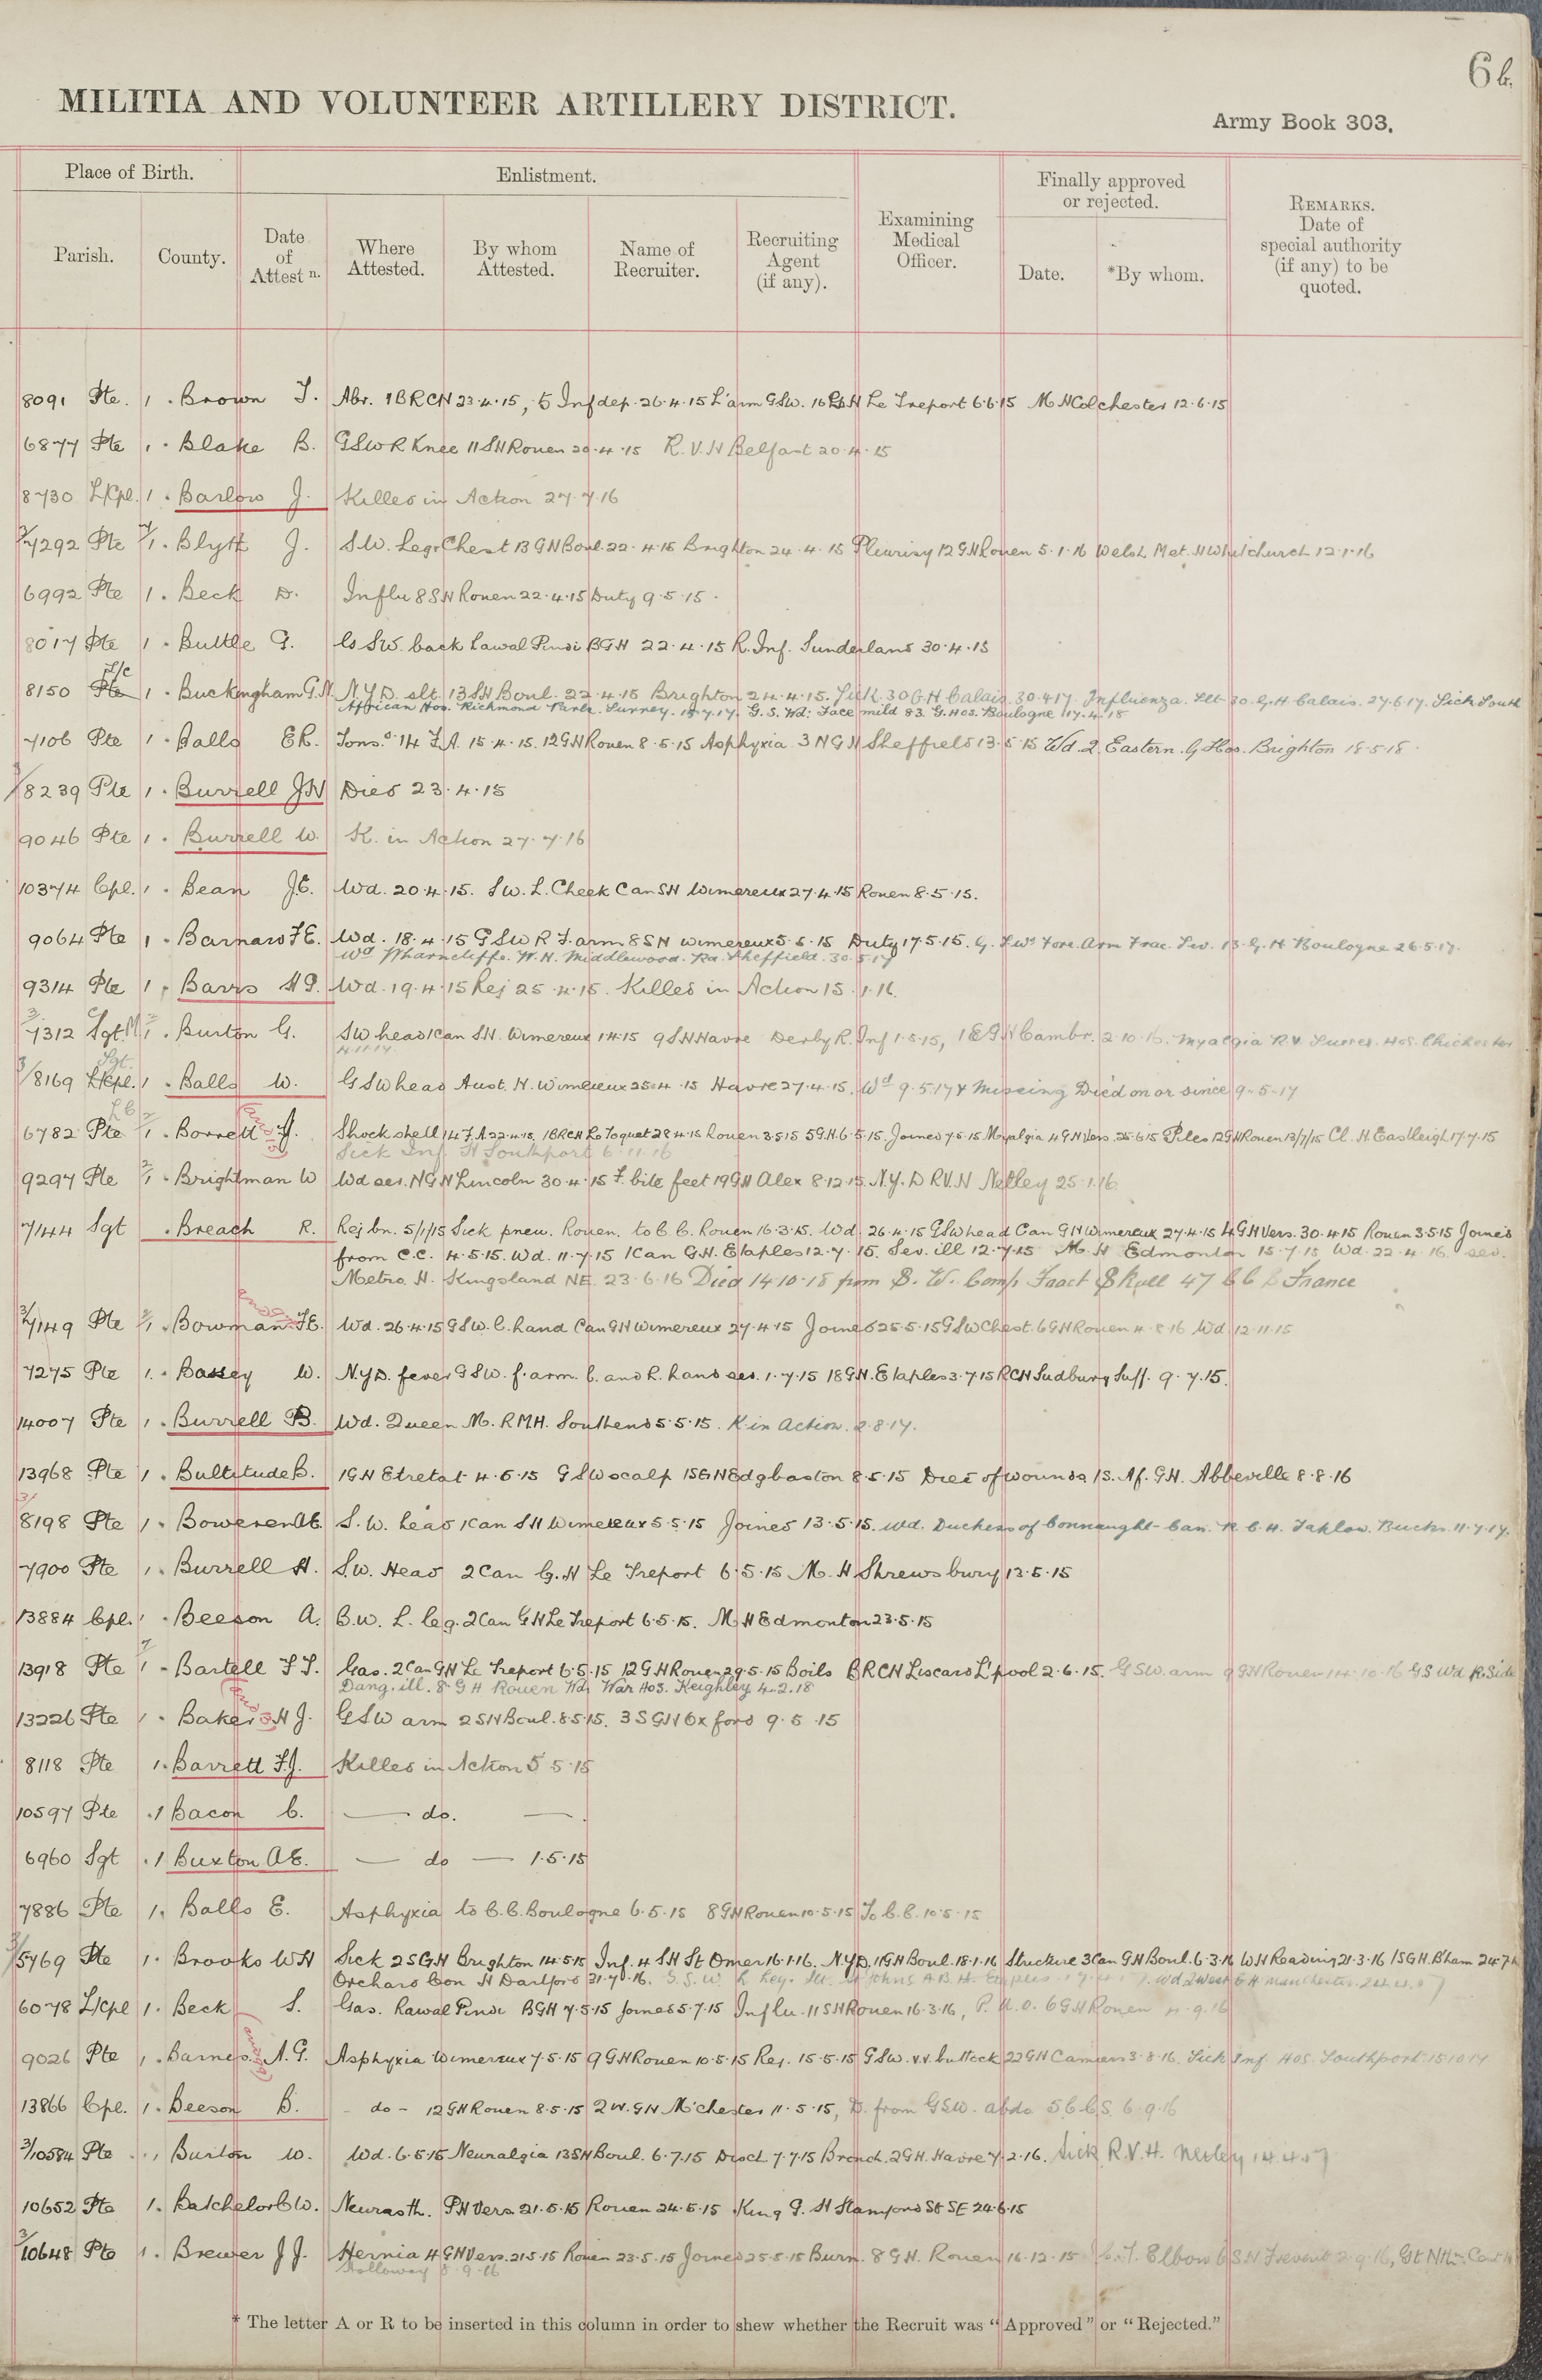 6b.
MILITIA AND VOLUNTEER ARTILLERY DISTRICT.
Army Book 303.
Place of Birth. Enlistment. Finally approved or rejected.
Parish. County. Date of Attestn. Where Attested. By whom Attested. Name of Recruiter. Recruiting Agent (if any). Examining Medical Officer. Date. *By whom. REMARKS. Date of special authority (if any) to be quoted.
8091 Pte. 1 . Brown T. Abr. 1BRCH 23.4.15, 5 Inf dep. 26.4.15 L'arm GSW. 16 H Le Treport 6.6.15 M H Colchester 12.6.15
6877 Pte 1 . Blake B. GSW R Knee 11 SH Rouen 20.4.15 R.V.H Belfast 20.4.15
8730 L/Cpl. 1 . Barlow J. Killed in Action 27.7.16
3/7292 Pte 7/1 . Blyth J. S.W. Leg & Chest 13 GH Boul. 22.4.15 Brighton 24.4.15 Pleurisy 12 GH Rouen 5.1.16 Welsh Met. H Whitchurch 12.1.16
6992 Pte 1 . Beck D. Influ 8 SH Rouen 22.4.15 Duty 9.5.15.
8017 Pte 1 . Buttle G. G SW. back Rawal Pindi BGH 22.4.15 R. Inf. Sunderland 30.4.15
L/C
8150 Pte 1 . Buckingham G.N. N.Y.D. slt. 13 SH Boul. 22.4.15 Brighton 24.4.15. Sick. 30 G H Calais 30.4.17. Influenza. Slt 30. G.H Calais. 27.6.17. Sick South
African Hos. Richmond Park. Surrey. 15.7.17. G.S. Wd: Face mild 83. G. Hos. Boulogne 17.4.18
7106 Pte 1 . Balls E R. Tons. 14 F.A. 15.4.15. 12 GH Rouen 8.5.15 Asphyxia 3 N G H Sheffield 13.5.15 Wd. 2. Eastern. G Hos. Brighton 18.5.18.
3/8239 Pte 1 . Burrell J H Died 23.4.15
9046 Pte 1 . Burrell W. K. in Action 27.7.16
10374 Cpl. 1 . Bean J E. Wd. 20.4.15. SW. L. Cheek Can SH Wimereux 27.4.15 Rouen 8.5.15.
9064 Pte 1 . Barnard F E. Wd. 18.4.15 G SW R F. arm 8 SH Wimereux 5.5.15 Duty 17.5.15. G. S Wd Fore. Arm Frac. Sev. 13. G. H. Boulogne 26.5.17.
Wd Wharncliffe. W. H. Middlewood. Rd. Sheffield. 30.5.17
9314 Pte 1 . Barrs H G. Wd. 19.4.15 Rej 25.4.15. Killed in Action 15.1.16.
3/7312 Sgt 1 . Burton G. SW head 1 Can SH. Wimereux 9 SH Havre Derby R. Inf 1.5.15, 1 E G H Cambr. 2.10.16. Myalgia R.W. Sussex. Hos. Chichester
4.11.17.
Sgt.
3/8169 L/Cpl. 1 . Balls W. G SW head Aust. H. Wimereux 25.4.15 Havre 27.4.15. Wd 9.5.17 & Missing Died on or since 9-5-17
LC
6782 Pte 2/1 . Borrett J. Shock shell 14 F.A. 22.4.15, 1 BRCH Le Toquet 28.4.15 Rouen 3.5.15 5 GH. 6.5.15. Joined 7.5.15 Myalgia 4 GH Vers. 25.6.15 Piles 12 GH Rouen 13/7/15 Cl. H. Eastleigh 17.7.15
Sick Inf H Southport 6.11.16
9297 Pte 2/1 . Brightman W Wd sev. N G N Lincoln 30.4.15 F. bite feet 19 GH Alex 8.12.15. N.Y.D R.V.H Netley 25.1.16.
7144 Sgt . Breach R. Rej bn. 5/1/15 Sick pneu. Rouen. to C.C. Rouen 16.3.15. Wd. 26.4.15 GSW head Can GH Wimereux 27.4.15 4 GH Vers. 30.4.15 Rouen 3.5.15 Joined
from C.C. 4.5.15. Wd. 11.7.15 1 Can G.H. Etaples 12.7.15. Sev. ill 12.7.15 M.H Edmonton 15.7.15 Wd. 22.4.16. sev.
Metro. H. Kingsland NE. 23.6.16 Died 14.10.18 from S.W. Comp. Fract Skull 47 C C S France
3/7149 Pte 2/1 . Bowman F E. Wd. 26.4.15 G SW. L. hand Can GH Wimereux 27.4.15 Joined 25.5.15 G SW Chest. 6 GH Rouen 4.8.16 Wd 12.11.15
7275 Pte 1 . Bassey W. N.Y.D. fever G SW. f. arm. L. and R. hand sev. 1.7.15 18 GH. Etaples 3.7.15 RCH Sudbury Suff. 9.7.15.
14007 Pte 1 . Burrell B. Wd. Queen M. R.M.H. Southend 5.5.15. K in Action. 2.8.17.
13968 Pte 1 . Bultitude B. 1 GH Etretat 4.5.15 G SW scalp 1 S G H Edgbaston 8.5.15 Died of wounds 1 S. Af. G.H. Abbeville 8.8.16
3/8198 Pte 1 . Boweren A E. S.W. head 1 Can SH Wimereux 5.5.15 Joined 13.5.15. Wd. Duchess of Connaught Can. R.C.H. Taplow. Bucks. 11.7.17.
7900 Pte 1 . Burrell H. S.W. Head 2 Can G.H Le Treport 6.5.15 M.H Shrewsbury 13.5.15
13884 Cpl. 1 . Beeson A. B.W. L. leg. 2 Can GH Le Treport 6.5.15. M H Edmonton 23.5.15
13918 Pte 2/1 . Bartell F T. Gas. 2 Can GH Le Treport 6.5.15 12 G H Rouen 29.5.15 Boils BRCH Liscard L'pool 2.6.15. GSW. arm 9 GH Rouen 14.10.16 G S Wd R. Side
Dang. ill. 8 G H Rouen Wd War Hos. Keighley 4.2.18
13226 Pte 1 . Baker H J. GSW arm 2 SH Boul. 8.5.15. 3 S GH Oxford 9.5.15
8118 Pte 1 . Barrett F.J. Killed in Action 5.5.15
10597 Pte . 1 Bacon C. — do. — .
6960 Sgt . 1 Buxton A E. — do — 1.5.15
7886 Pte 1 . Balls E. Asphyxia to C.C. Boulogne 6.5.15 8 GH Rouen 10.5.15 To C.C. 10.5.15
3/5769 Pte 1 . Brooks W H Sick 2 S G H Brighton 14.5.15 Inf. 4 SH St Omer 16.1.16. N.Y.D. 11 GH Boul. 18.1.16 Stricture 3 Can GH Boul. 6.3.16 W H Reading 21.3.16 1 S G H. B'ham 24.7.
Orchard Con H Dartford 21.7.16. G.S.W. R Leg. Slt. St Johns A.B.H. Etaples Wd 2 West G H Manchester.
6078 L/Cpl 1 . Beck S. Gas. Rawal Pindi BGH 7.5.15 Joined 5.7.15 Influ. 11 SH Rouen 16.3.16, P.U.O. 6 GH Rouen 4.9.16
9026 Pte 1 . Barnes A.G. Asphyxia Wimereux 7.5.15 9 GH Rouen 10.5.15 Rej. 15.5.15 G SW. v.v. buttock 22 GH Camiers 3.8.16. Sick Inf Hos. Southport. 15.10.17
13866 Cpl. 1 . Beeson B. - do - 12 GH Rouen 8.5.15 2 W. GH M'chester 11.5.15, D. from GSW. abdo 5 C.C.S. 6.9.16
3/10584 Pte 1 Burton W. Wd. 6.5.15 Neuralgia 13 SH Boul. 6.7.15 Disch 7.7.15 Bronch. 2 GH. Havre 7.2.16. Sick R.V.H. Netley 14.4.17
10652 Pte 1 . Batchelor C W. Neurasth. GH Vers. 21.5.15 Rouen 24.5.15 King G. H Stamford St SE 24.6.15
3/10648 Pte 1 . Brewer J J. Hernia 4 GH Vers. 21.5.15 Rouen 23.5.15 Joined 25.5.15 Burn. 8 G H. Rouen 16.12.15 I.C.T. Elbow 6 SH Frevent 2.9.16, Gt Nthn Cent H
Holloway 8.9.16
* The letter A or R to be inserted in this column in order to shew whether the Recruit was “Approved” or “Rejected.”